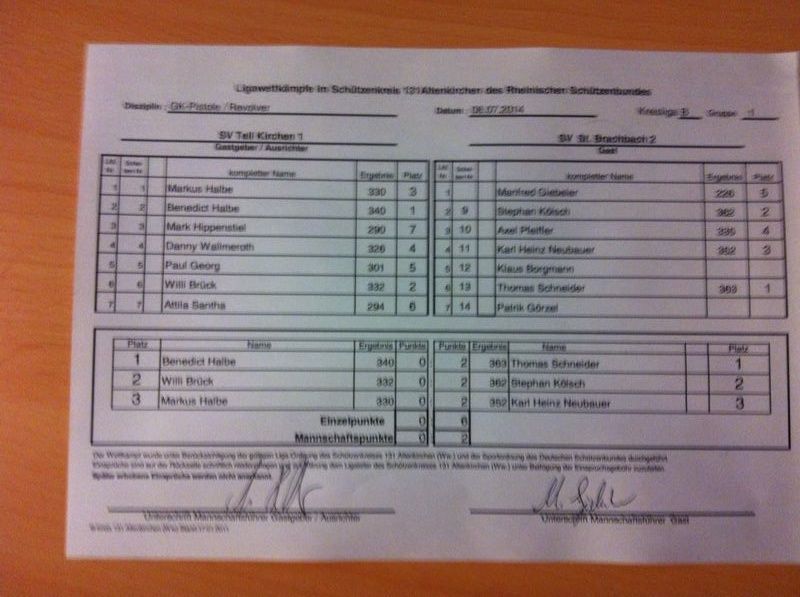 Ligawettkämpfe im Schützenkreis 131 Altenkirchen des Rheinischen Schützenbundes
Disziplin: GK-Pistole / Revolver Datum: 06.07.2014 Kreisliga B Gruppe 1
SV Tell Kirchen 1 SV St. Brachbach 2
Gastgeber / Ausrichter Gast
Lfd. Nr. kompletter Name Ergebnis Platz Lfd. Nr. kompletter Name Ergebnis Platz
1 1 Markus Halbe 330 3 1 Manfred Giebeler 226 5
2 2 Benedict Halbe 340 1 2 9 Stephan Kölsch 362 2
3 3 Mark Hippenstiel 290 7 3 10 Axel Pfeifer 335 4
4 4 Danny Wallmeroth 326 4 4 11 Karl Heinz Neubauer 352 3
5 5 Paul Georg 301 5 5 12 Klaus Borgmann
6 6 Willi Brück 332 2 6 13 Thomas Schneider 363 1
7 7 Attila Santha 294 6 7 14 Patrik Görzel
Platz Name Ergebnis Punkte Punkte Ergebnis Name Platz
1 Benedict Halbe 340 0 : 2 363 Thomas Schneider 1
2 Willi Brück 332 0 : 2 362 Stephan Kölsch 2
3 Markus Halbe 330 0 : 2 352 Karl Heinz Neubauer 3
Einzelpunkte 0 : 6
Mannschaftspunkte 0 : 2
Der Wettkampf wurde unter Berücksichtigung der gültigen Liga Ordnung des Schützenkreises 131 Altenkirchen (Ww.) und der Sportordnung des Deutschen Schützenbundes durchgeführt.
Einsprüche sind auf der Rückseite schriftlich des Schützenkreises 131 Altenkirchen (Ww.) unter Beifügung der Einspruchsgebühr
Später erhobene Einsprüche werden nicht anerkannt.
Unterschrift Mannschaftsführer Gastgeber / Ausrichter Unterschrift Mannschaftsführer Gast